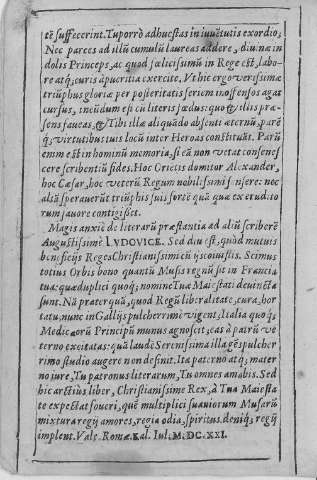 tẽ suffecerint. Tu porrò adhuc stas in iuuẽtutis exordio;
Nec parces ad illũ cumulũ laureas addere, diuina in
dolis Princeps, ac quod fælicissimũ in Rege est, labo-
re atq; curis apueritia exercite. Vt hic ergo verissimæ
triũphus gloriæ per posteritatis seriem inoffensos agat
cursus, ineũdum est cũ literis fœdus: quo & illis præ-
sens faueas, & Tibi illæ aliquãdo absenti æternũ, parẽ
q; virtutibus tuis locũ inter Heroas constituãt. Parũ
enim est in hominũ memoria, si eã non vetat consenes
cere scribentiũ fides. Hoc Orietis domitor Alexander,
hoc Cæsar, hoc veterũ Regum nobilissimi : nec
alsã sperauerũt triũphis suis sortẽ quã quæ ex erudito
rum fauore contigisset.
Magis anxiè de literarũ præstantia ad aliũ scriberẽ
Augustissime LVDOVICE. Sed diu est, quòd mutuis
beneficijs Reges Christianissimi cũ ijs coiustis. Scimus
totius Orbis bono quantũ Musis regnũ sit in Francia
tua: quæ duplici quoq; nomine Tuæ Maiestati deuinctæ
sunt. Nã præterquã, quod Regũ liberalitate, cura, hor
tatu, nunc in Gallijs pulcherrime vigent; Italia quoq;
Medicæorũ Principũ munus agnoscit; eas à patrũ ve
terno excitatas: quã laudẽ Serenissima illa gẽs pulcher
rimo studio augere non desinit. Ita paterno atq; mater
no iure, Tu patronus literarum, Tu omnes amabis. Sed
hic arctius liber, Christianissime Rex, à Tua Maiesta
te expectat foueri, quẽ multiplici suauiorum Musarũ
mixtura regij amores, regia odia, spiritus deniq; regij
implent. Vale. Romæ Kal. Iul. M. DC. XXI.